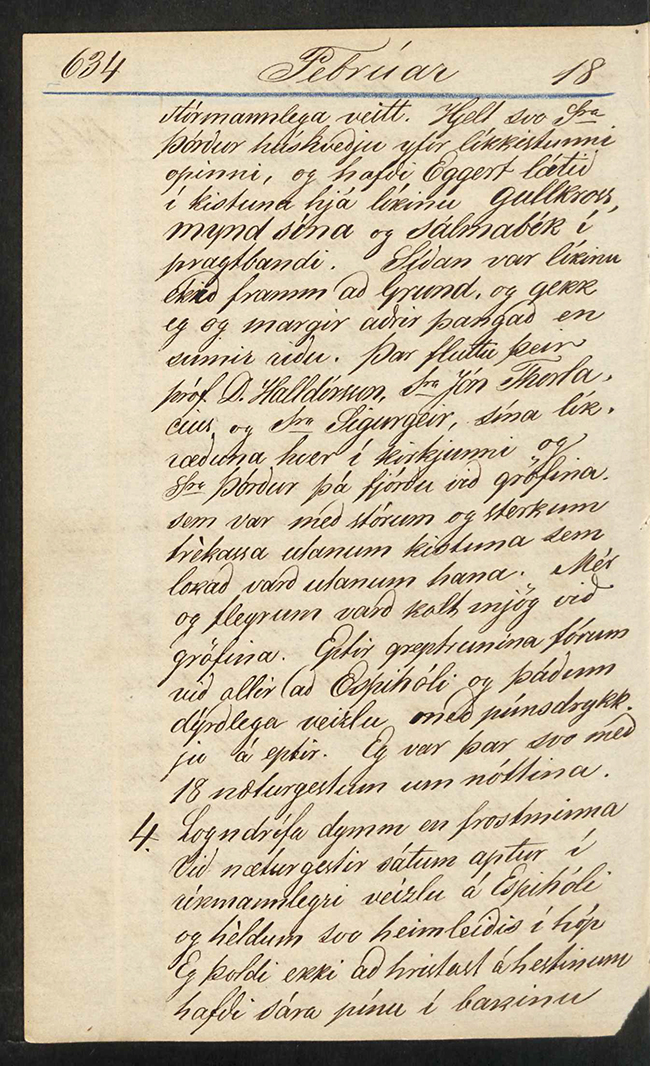 634 Februar 18
stórmannlega veitt. Hjelt svo Sra
Þórður húskveðju yfir líkkistunni
opinni, og hafði Eggert látið
í kistuna hjá líkinu gullkross,
mynd sína og sálmabók í
pragtbandi. Síðan var líkinu
ekið framm að Grund, og gekk
eg og margir aðrir þangað en
sumir riðu. Þar fluttu þeir
próf. D. Halldórsson, Sra Jón Thorla,
cius og Sra Sigurgeir, sína lík,
ræðuna hver í kirkjunni og
Sra Þórður þá fjórðu við gröfina.
sem var með stórum og sterkum
trèkassa utanum kistuna sem
lokað varð utanum hana. Mér
og flegrum varð kalt mjög við
gröfina. Eptir greptrunina fórum
við allir að Espihóli og þáðum
dýrðlega veizlu með púnsdrykk,
ju á eptir. Eg var þar svo með
18 næturgestum um nóttina.
4. Logndrífa dymm en frostminna
Við næturgestir sátum aptur í
ríkmannlegri veizlu á Espihóli
og hèldum svo heimleiðis í hóp
Eg þoldi ekki að hristast á hestinum
hafði sára pínu í bakinu